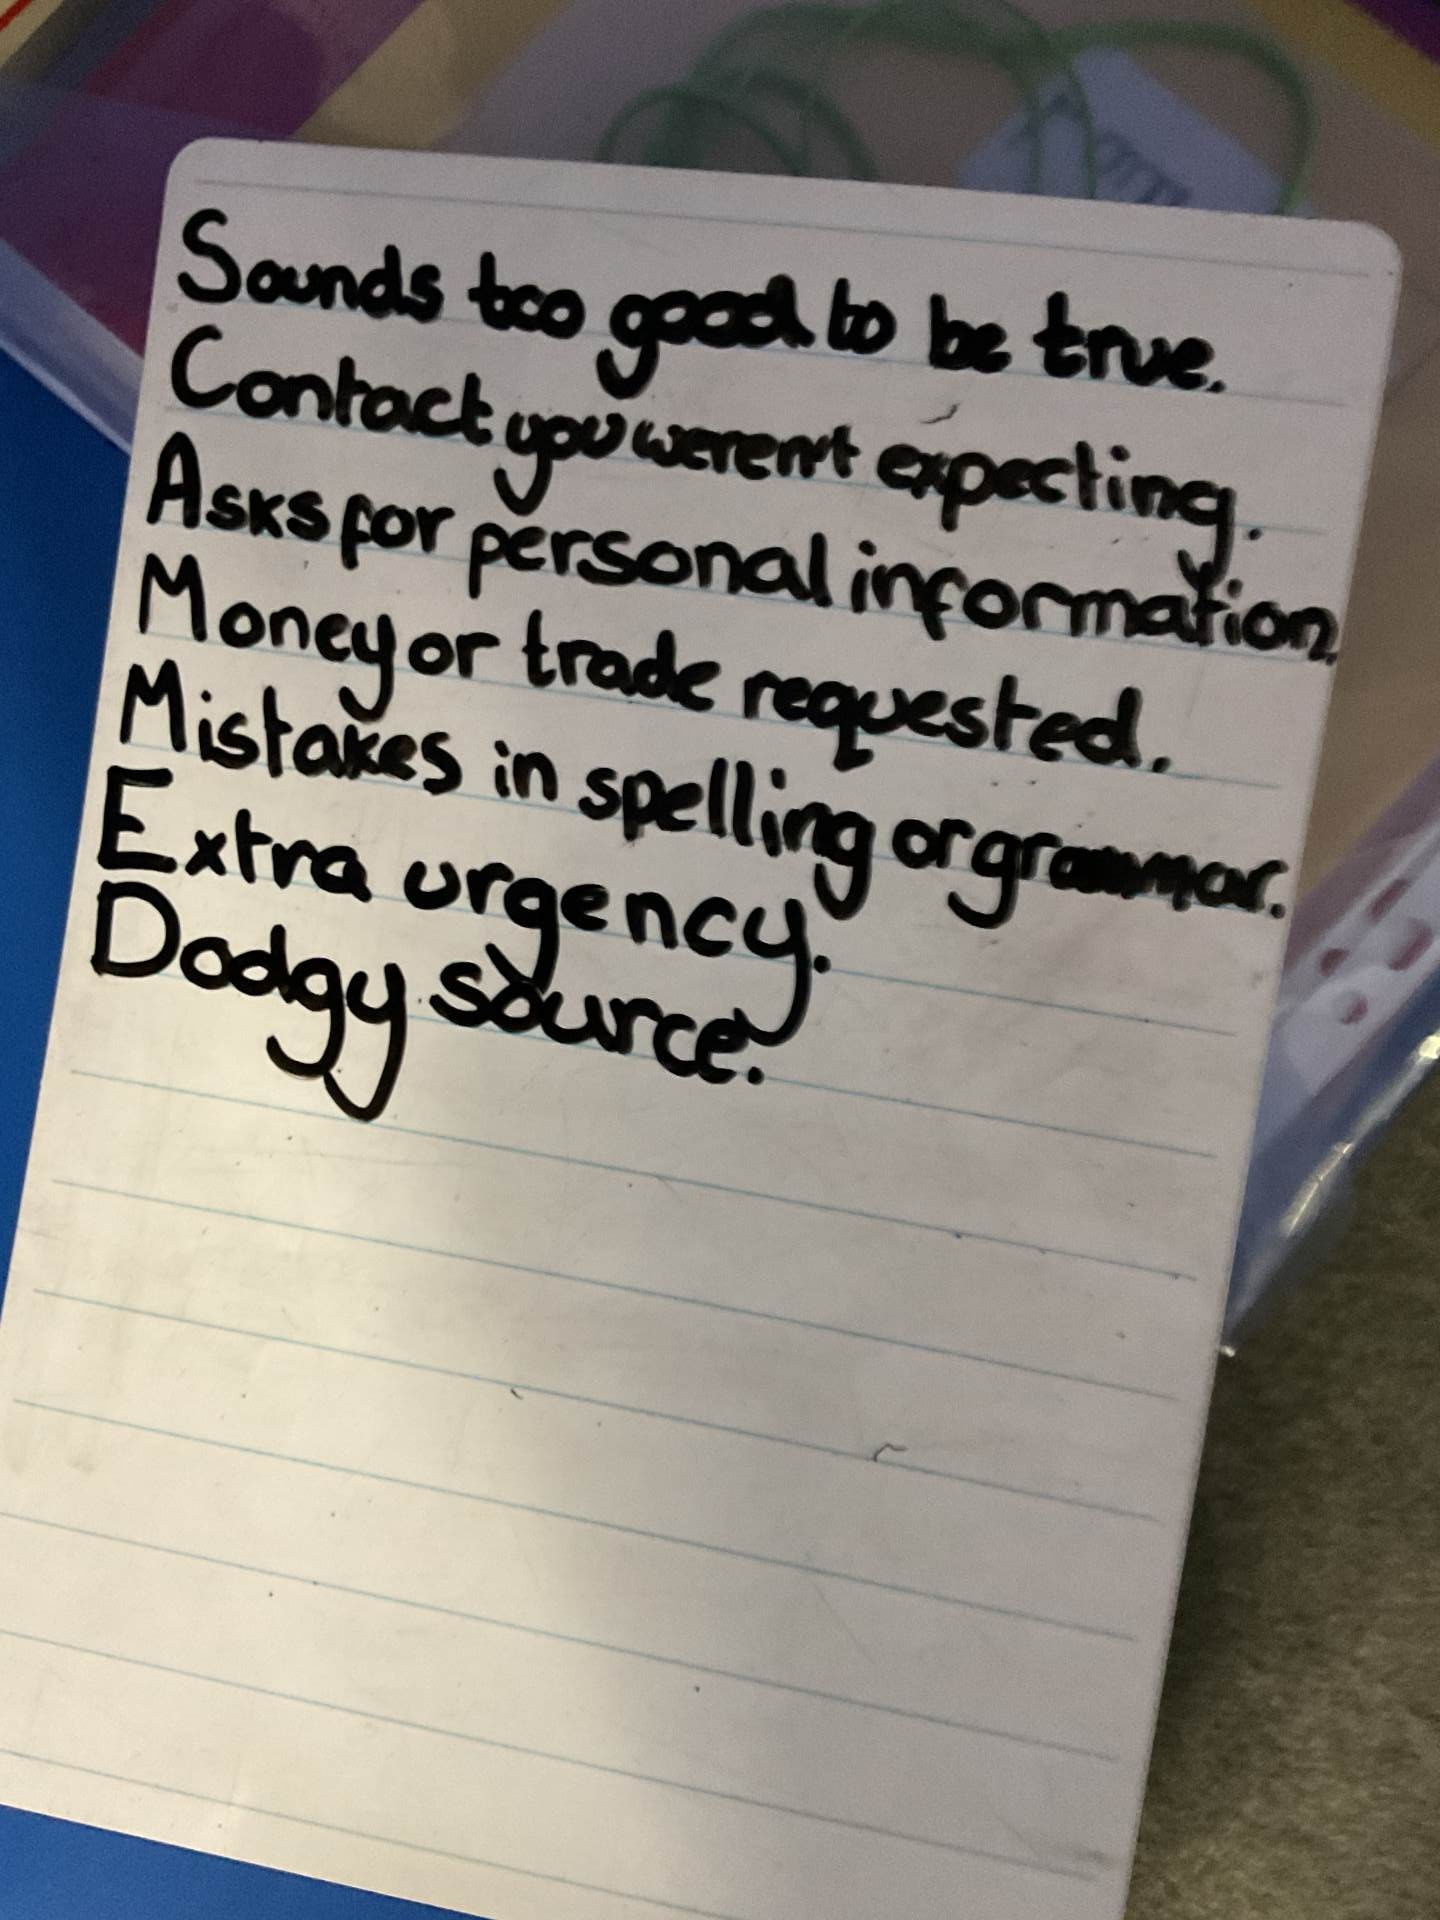 Sounds too good to be true.
Contact you weren't expecting.
Asks for personal information.
Money or trade requested.
Mistakes in spelling or grammar.
Extra urgency.
Dodgy source.